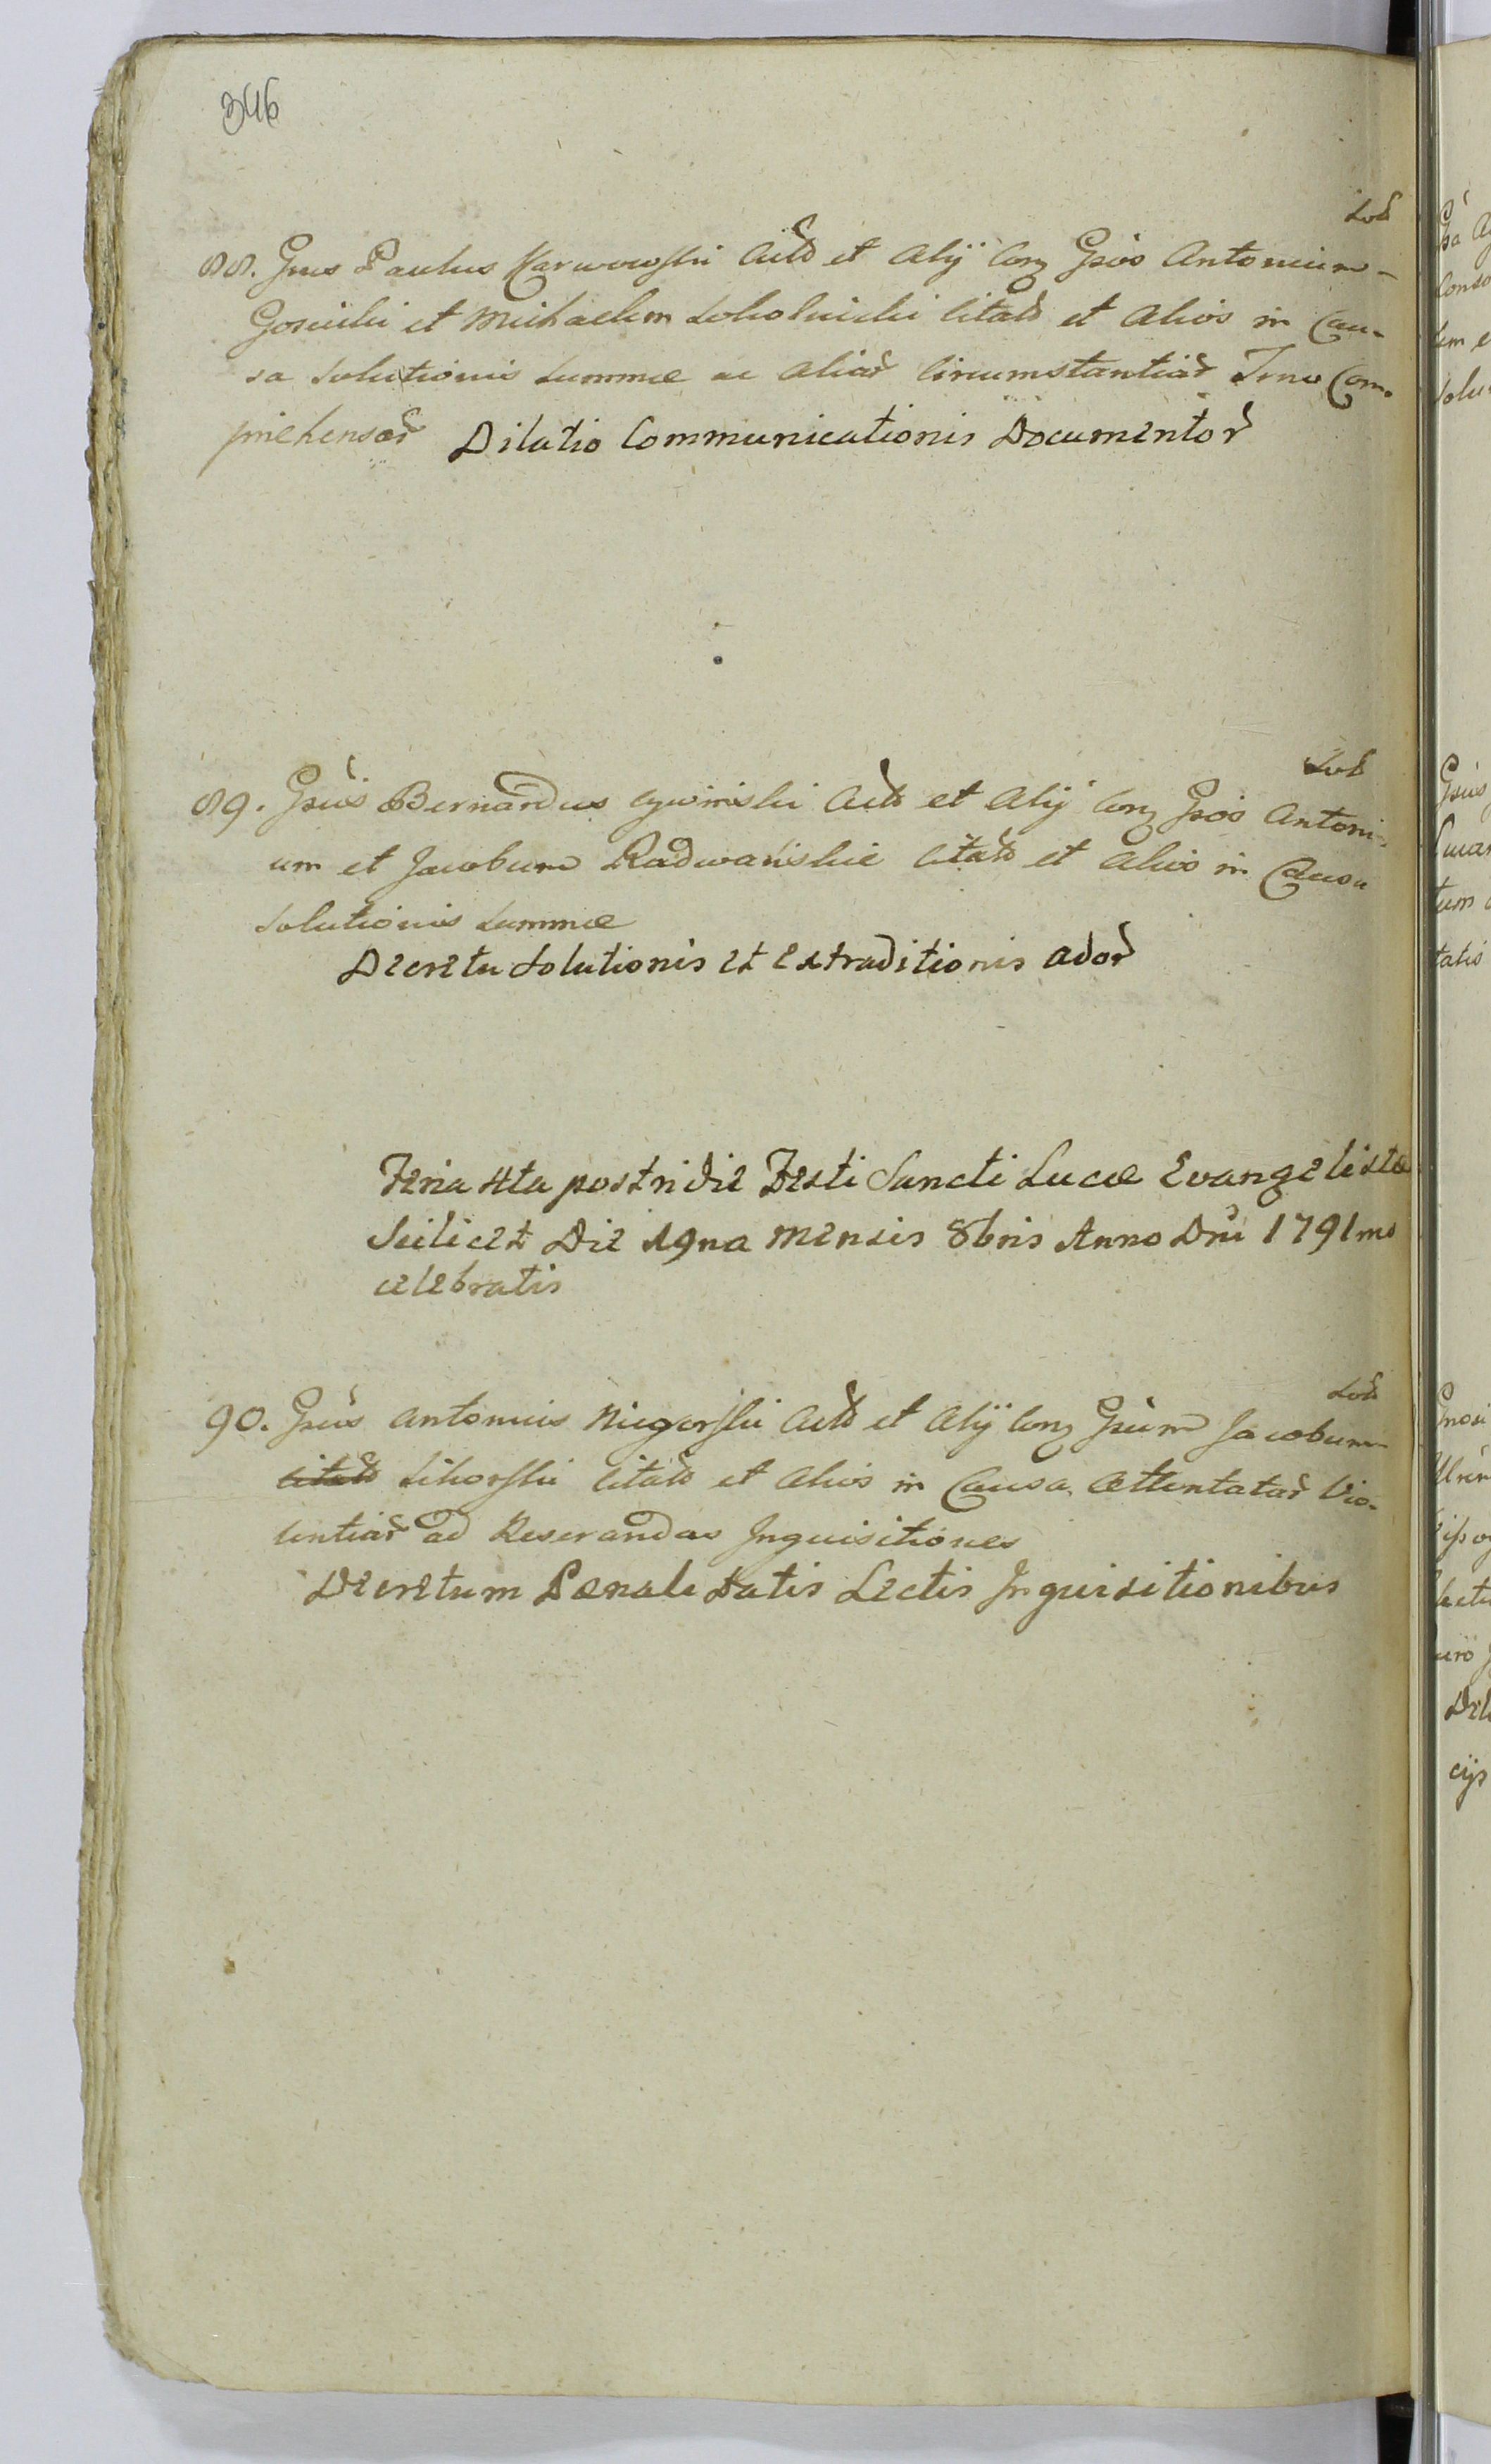 346
Lod
88. Gnus Paulus Karwowski Actd et Alij Conq Gsos Antonium
Gosicki et Michaelem Sokolnicki Citatd et Alios in Cau-
sa Solutionis Summæ ac Aliar Circumstantiar Tenu Com-
præhensar Dilatio Communicationis Documentor
Lod
89. Gsus Bernardus Cywiński Actd et Alij Conq Gsos Antoni-
um et Jacobum Radwańskie Citatd et Alios in Causa
Solutionis Summæ
Decretu Solutionis et Extraditionis Ador
Feria 4ta postridie Festi Sancti Lucæ Evangelistæ
Scilicet Die 19na Mensis 8bris Anno Dni 1791mo
celebratis
Lod
90. Gsus Antonius Niegorski Actd et Alij Conq Gsum Jacobum
Citatd Sikorski Citatd et Alios in Causa Attentatar Vio-
lentiar ad Reserandas Inquisitiones
Decretum Pœnale Datis Lectis Inquisitionibus